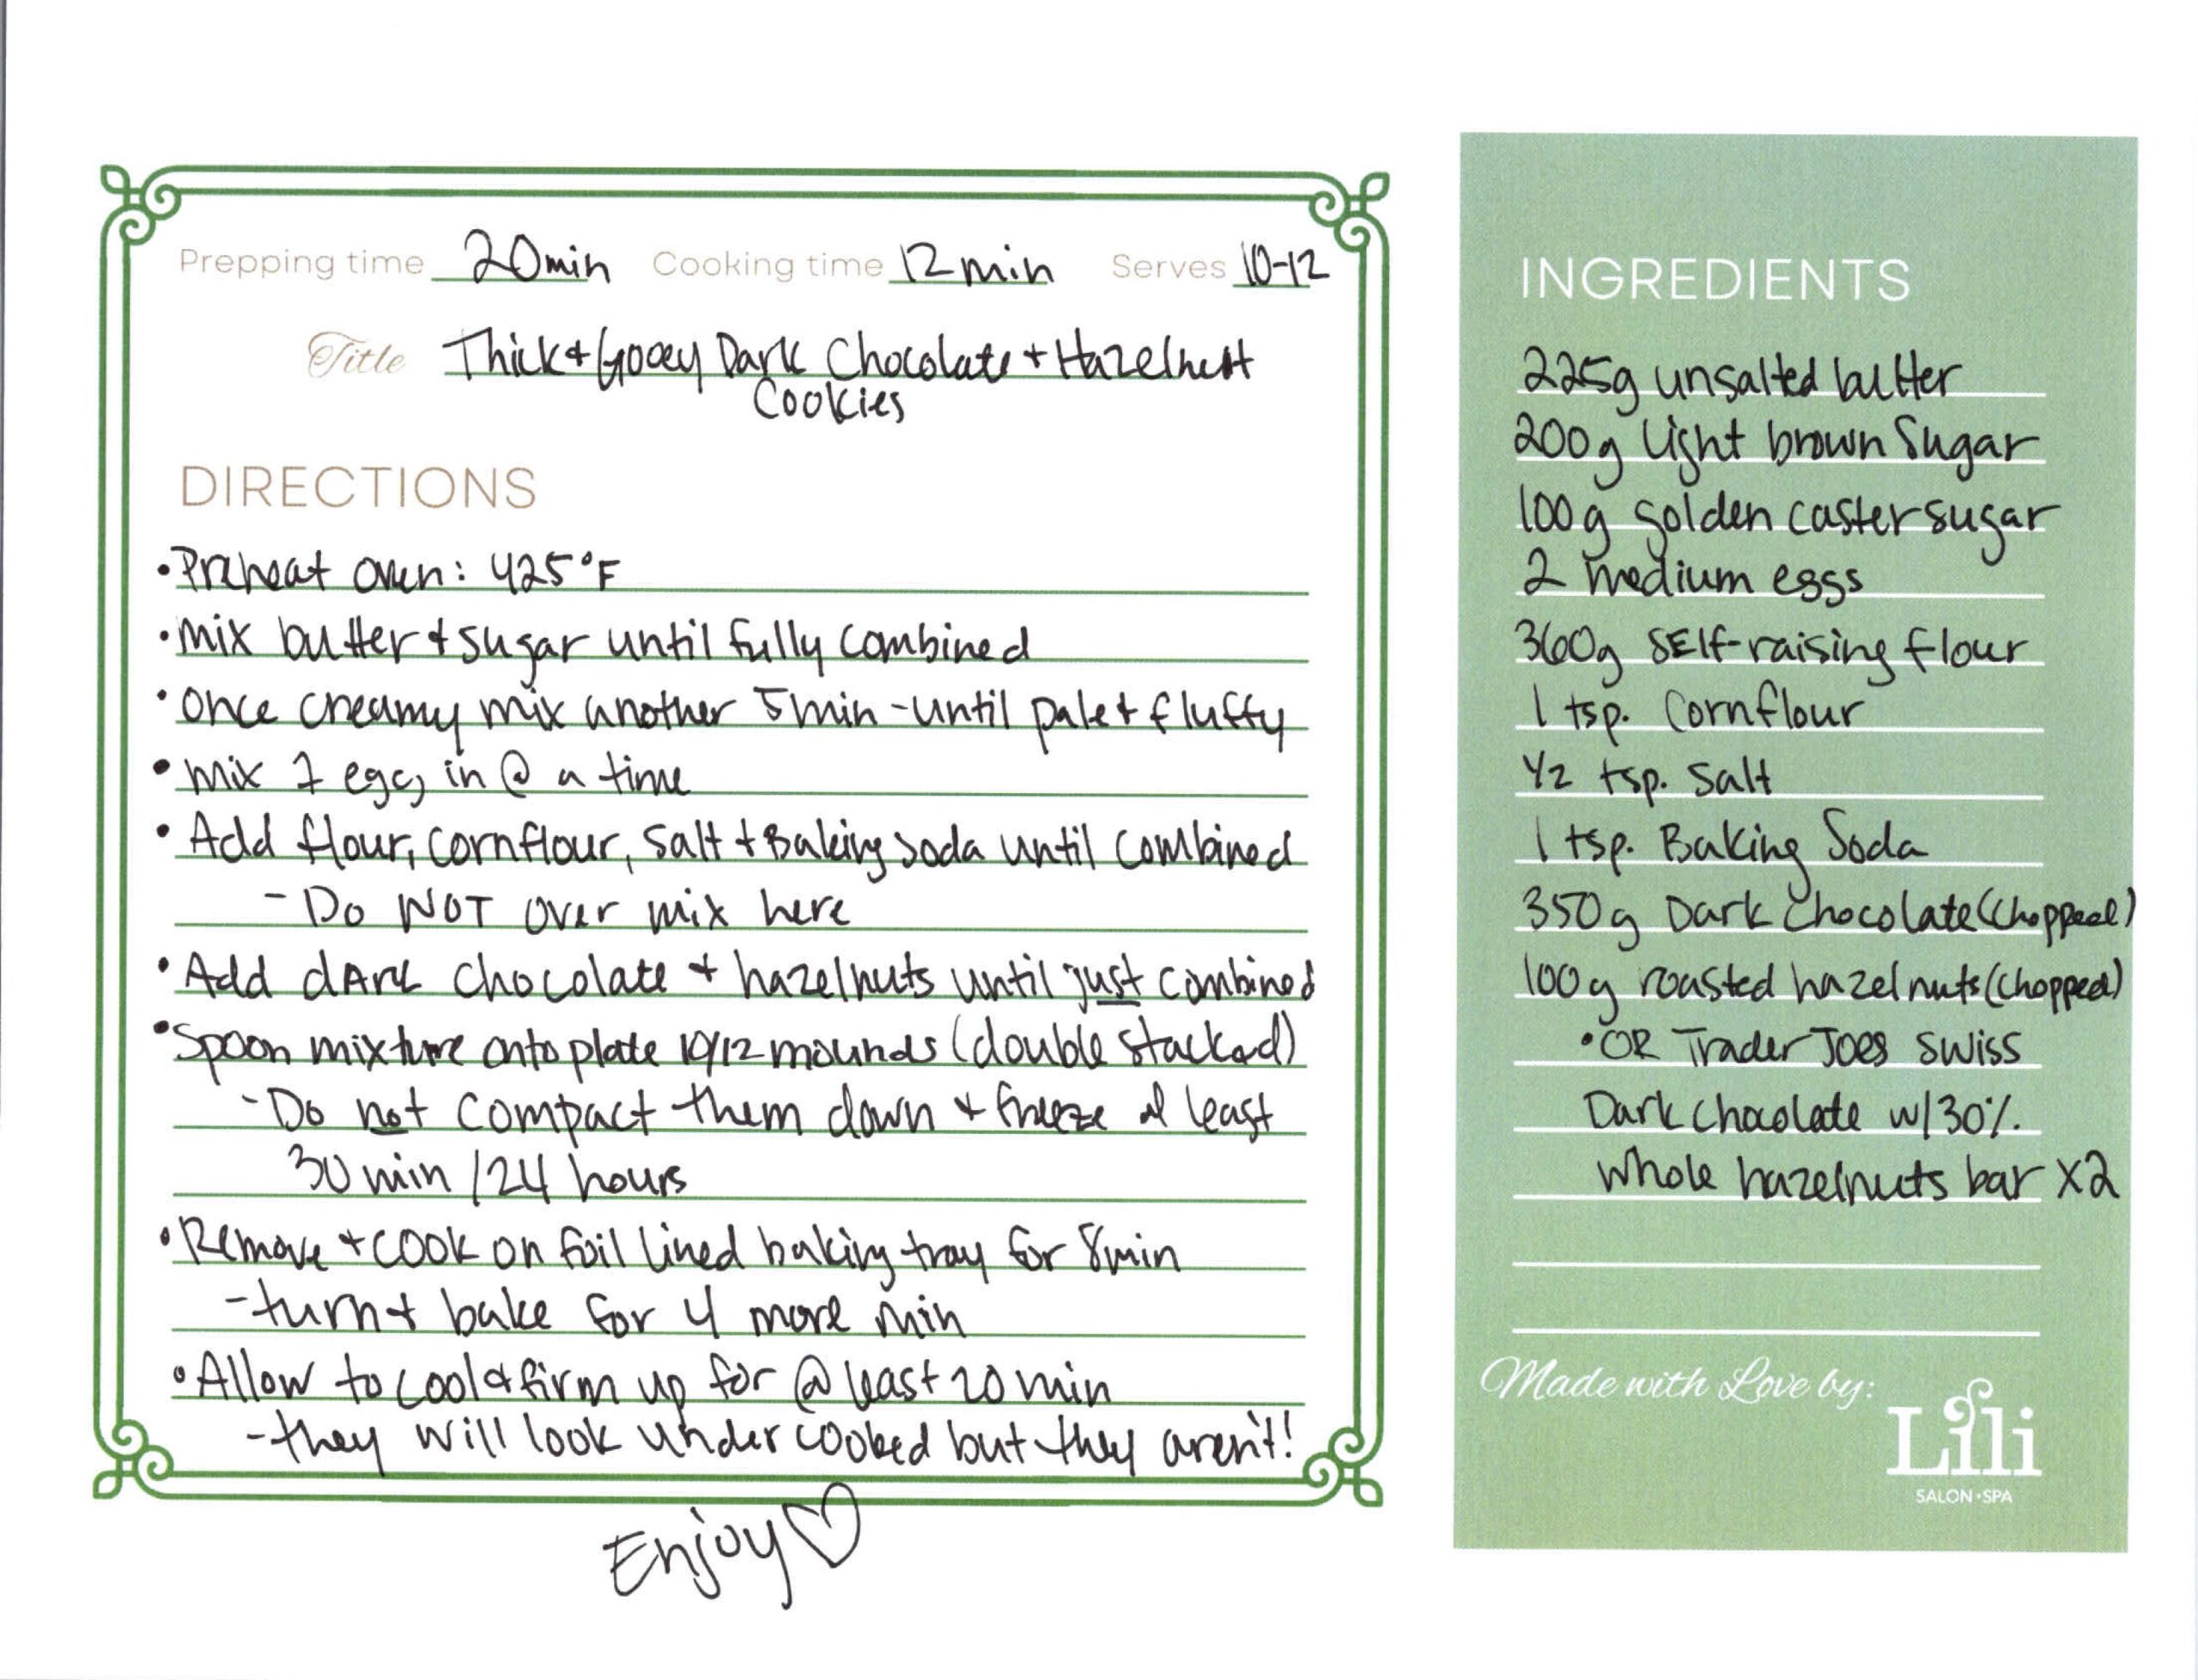 Prepping time 20min Cooking time 12 min Serves 10-12
Title Thick + Gooey Dark Chocolate + Hazelnut
Cookies
DIRECTIONS
• Preheat oven: 425°F
• mix butter + sugar until fully combined
• Once creamy mix another 5 min - until pale + fluffy
• mix 1 egg in @ a time
• Add flour, cornflour, salt + Baking soda until combined
- Do NOT over mix here
• Add dark chocolate + hazelnuts until just combined
• Spoon mixture onto plate 10/12 mounds (double stacked)
- Do not compact them down + freeze at least
30 min / 24 hours
• Remove + cook on foil lined baking tray for 8 min
- turn + bake for 4 more min
• Allow to cool + firm up for @ least 20 min
- they will look under cooked but they aren't!
Enjoy ♡
INGREDIENTS
225g unsalted butter
200g light brown Sugar
100g golden caster sugar
2 medium eggs
360g SElf-raising flour
1 tsp. Cornflour
1/2 tsp. Salt
1 tsp. Baking Soda
350g Dark Chocolate (Chopped)
100g roasted hazelnuts (chopped)
• OR Trader Joes Swiss
Dark chocolate w/30%
whole hazelnuts bar x2
Made with Love by:
Lili
SALON • SPA